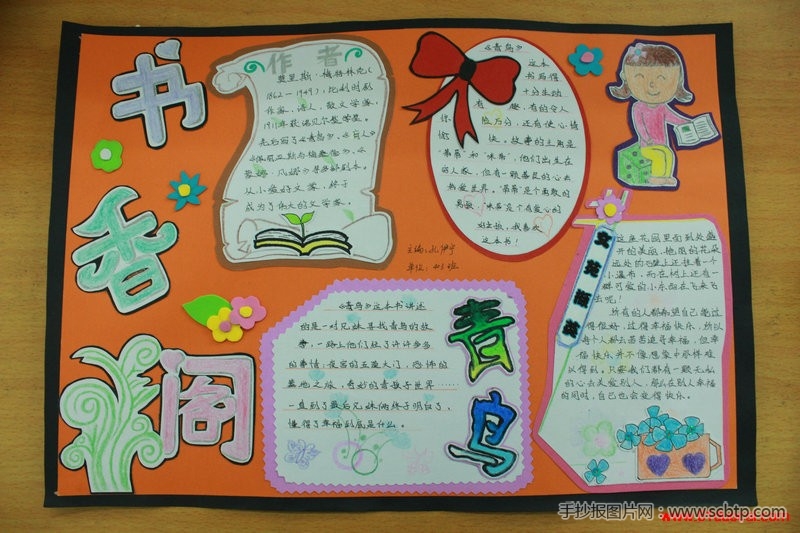 书
香
阁
作者
莫里斯·梅特林克(
1862—1949),比利时剧
作家,诗人,散文学家,
1911年获诺贝尔文学奖。
先后写了《青鸟》、《盲人》
从小爱好文学,终于
成为了伟大的文学家。
《青鸟》
这本
书写得
十分生动
有趣,有的令人
惊险万分,还有使心情
愉快。故事的主角是
他们出生在
穷人家,但有一颗善良的心去
热爱世界。
是个有爱心的
好女孩,我喜欢
这本书!
主编:
单位:
《青鸟》这本书讲述
的是一对兄妹寻找青鸟的故
事,一路上他们经了许许多多
的事情:夜宫的五道大门、恐怖的
墓地之旅,奇妙的青孩子世界……
一直到了最后兄妹俩终于明白了,
懂得了幸福到底是什么。
青
鸟
这座花园里面到处盛
开的美丽、艳丽的花朵
远处的石壁上还挂着一个
小瀑布,而在树上还有一
群可爱的小东西在飞来飞
去呢!
所有的人都希望自己能过
得很好,过得幸福快乐,所以
每个人都去苦苦追寻幸福,但幸
福快乐并不像想象中那样难
以得到。只要我们都有一颗无私
的心去关爱别人,那么在别人幸福
的同时,自己也会变得快乐。
手抄报图片网:www.scbtp.com